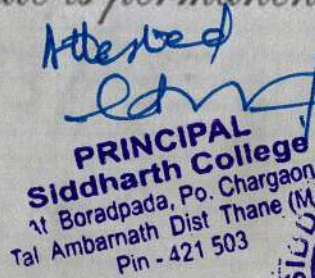 is permanen
Attested
PRINCIPAL
Siddharth College
At Boradpada, Po. Chargaon
Tal Ambarnath Dist Thane (M
Pin - 421 503